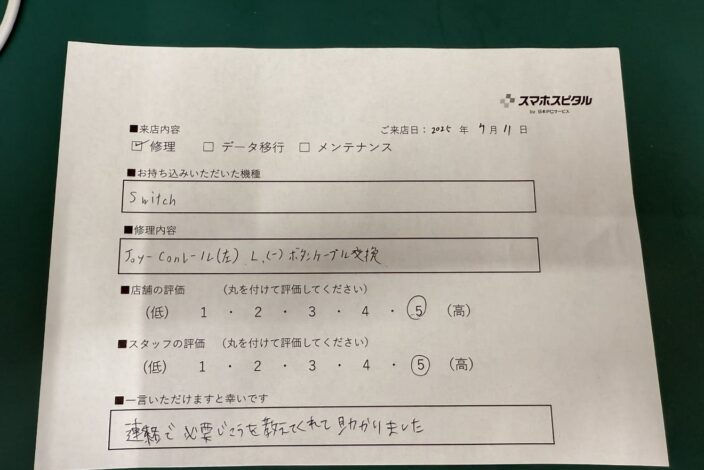 スマホスピタル
by 日本PCサービス
■来店内容
ご来店日：2025 年 7月 11 日
☑ 修理 □ データ移行 □ メンテナンス
■お持ち込みいただいた機種
Switch
■修理内容
Joy-Conレール(左) L、(-)ボタンケーブル交換
■店舗の評価 （丸を付けて評価してください）
（低） 1 ・ 2 ・ 3 ・ 4 ・ 5 （高）
■スタッフの評価 （丸を付けて評価してください）
（低） 1 ・ 2 ・ 3 ・ 4 ・ 5 （高）
■一言いただけますと幸いです
連絡で必要じこうを教えてくれて助かりました